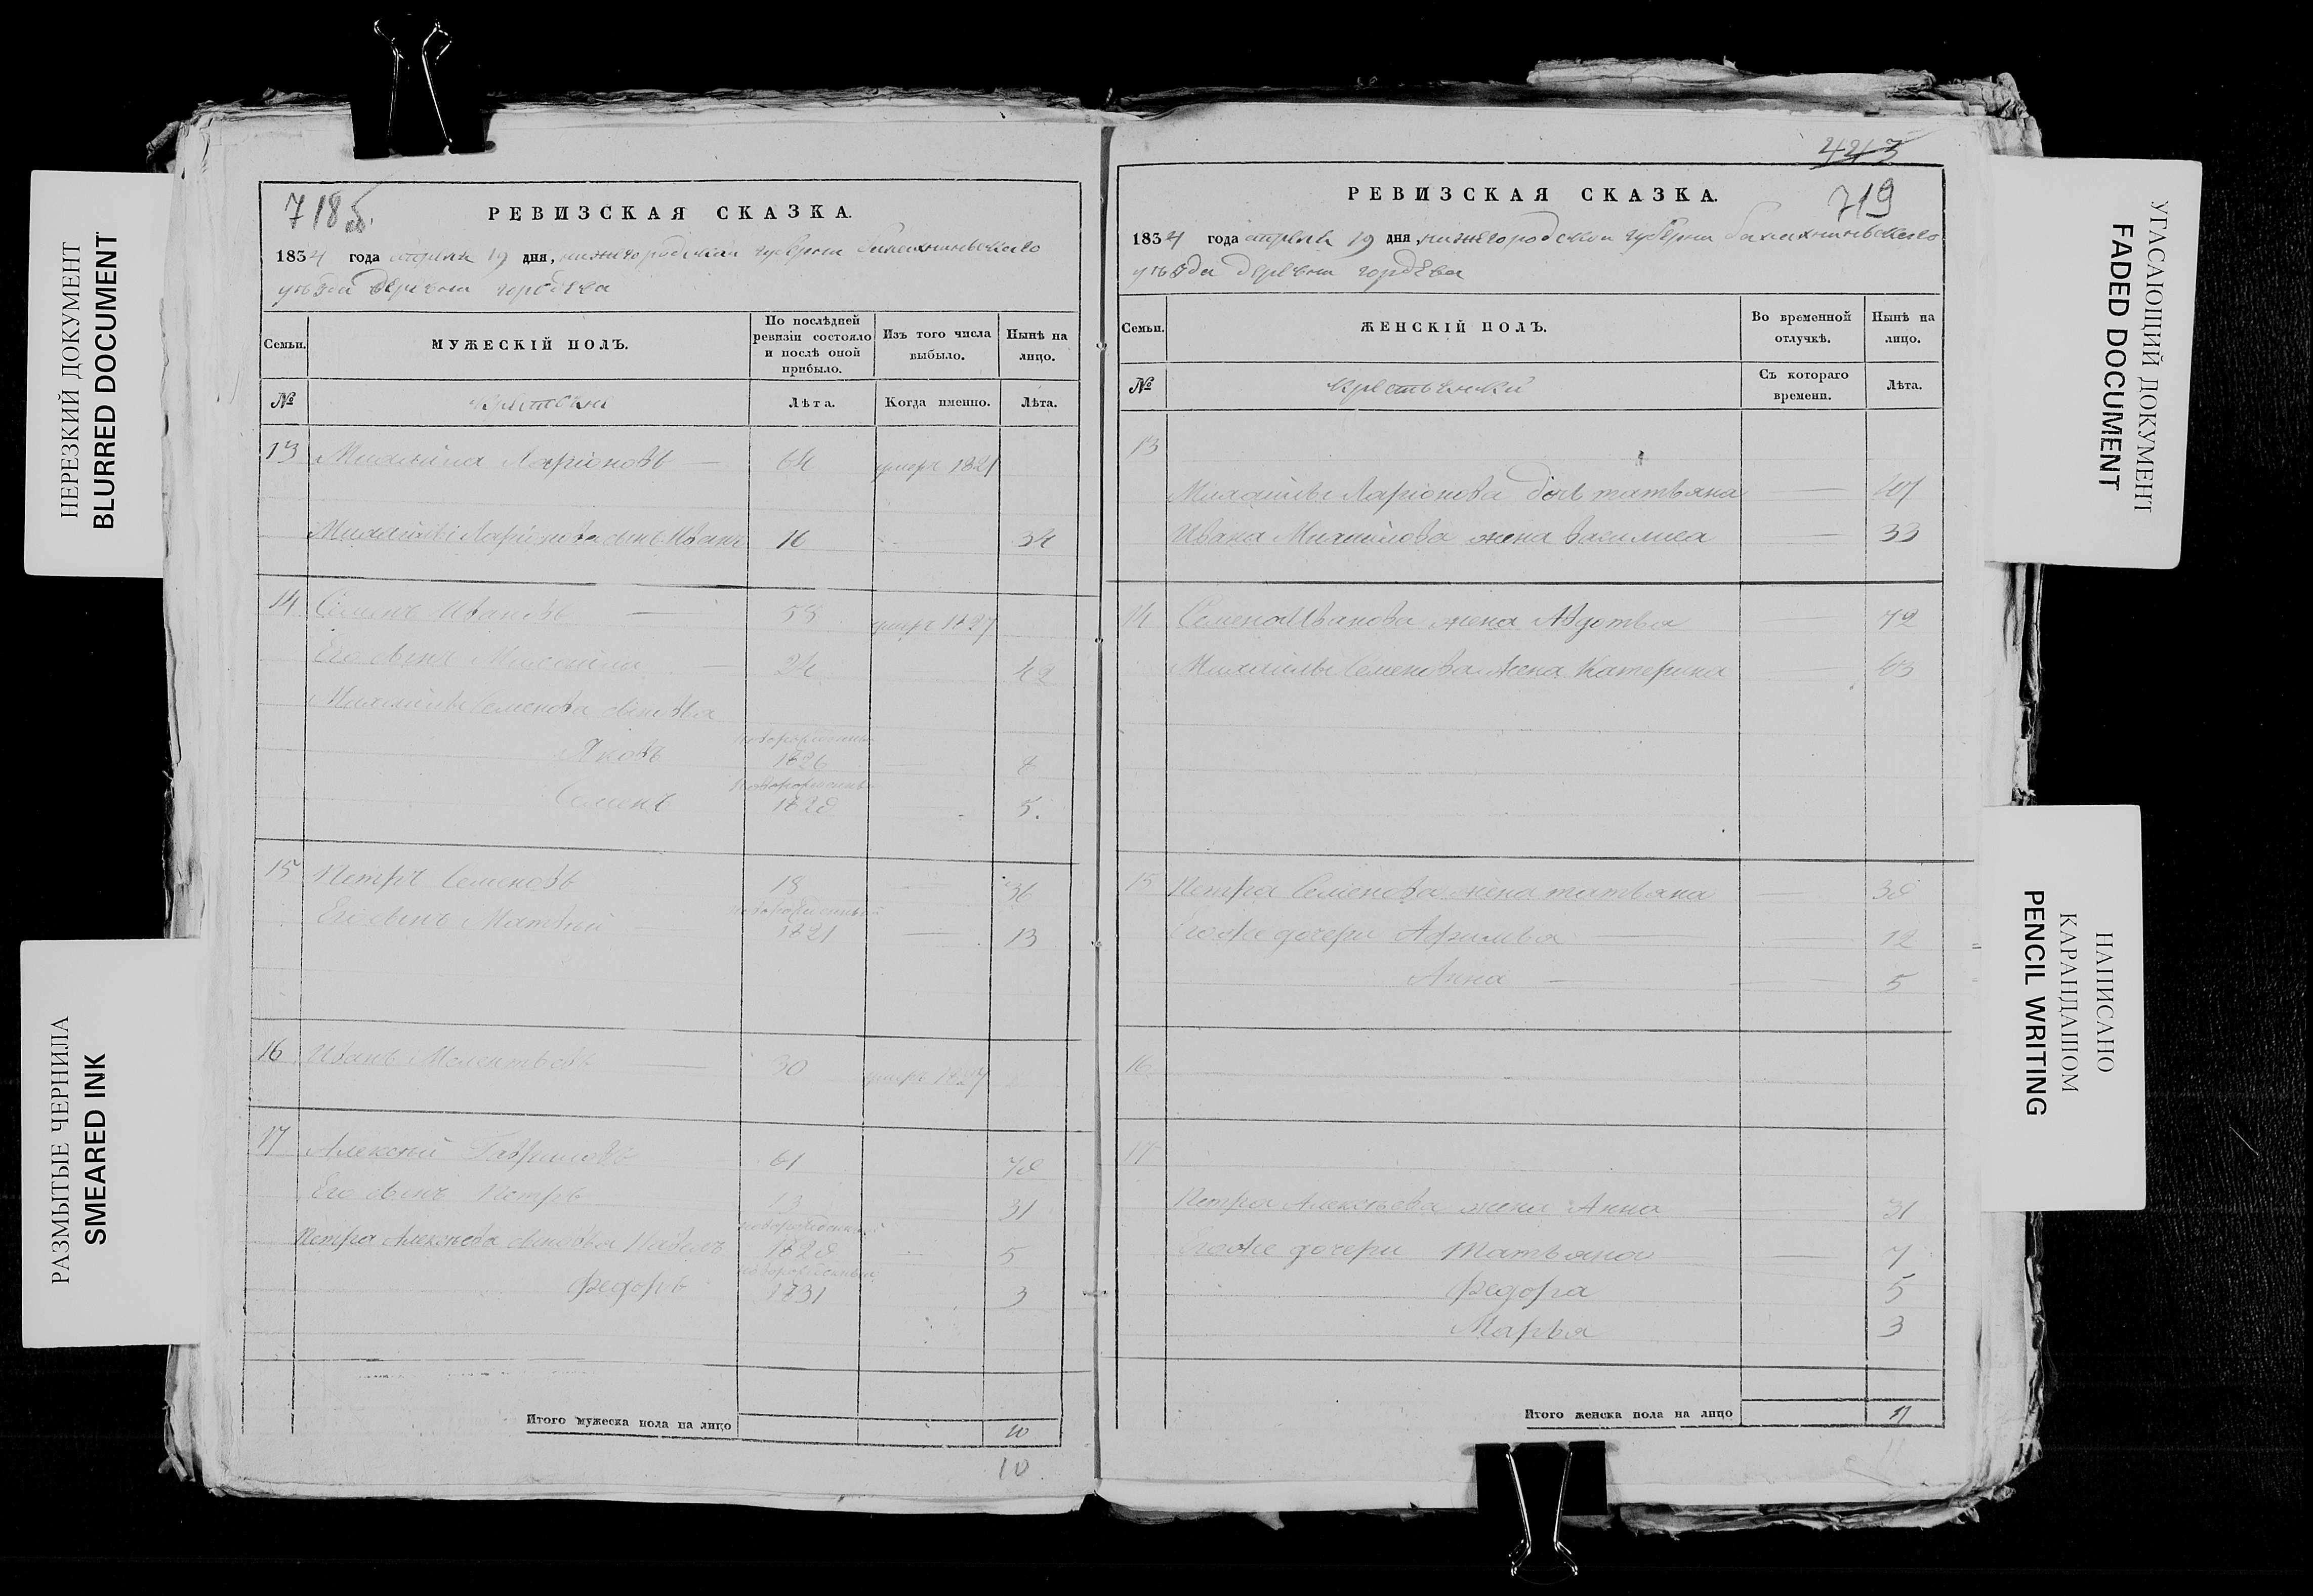 НЕРЕЗКИЙ ДОКУМЕНТ
BLURRED DOCUMENT
РАЗМЫТЫЕ ЧЕРНИЛА
SMEARED INK
718 об.
РЕВИЗСКАЯ СКАЗКА.
1834 года апреля 19 дня, нижегородской губернии балахнинского
уѣзда деревни гордѣева
Семьи.
МУЖЕСКІЙ ПОЛЪ.
По послѣдней ревизіи состояло и послѣ оной прибыло.
Изъ того числа выбыло.
Нынѣ на лицо.
№
крестьяне
Лѣта.
Когда именно.
Лѣта.
13 Михайла Ларіоновъ 64 умеръ 1821
Михайлы Ларіонова сынъ Иванъ 16 34
14 Семенъ Ивановъ 55 умеръ 1827
Его сынъ Михайла 24 42
Михайлы Семенова сыновья
Яковъ новорожденный 1826 8
Семенъ новорожденный 1828 5.
15 Петръ Семеновъ 18 36
Его сынъ Матвѣй новорожденный 1821 13
16 Иванъ 30 умеръ 1827
17 Алексѣй Гавриловъ 61 78
Его сынъ Петръ 13 31
Петра Алексѣева сыновья Павелъ новорожденный 1828 5
Федоръ новорожденный 1831 3
Итого мужеска пола на лицо 10
10
443
РЕВИЗСКАЯ СКАЗКА.
719
1834 года апреля 19 дня, нижегородской губернии балахнинского
уѣзда деревни гордѣева
Семьи.
ЖЕНСКІЙ ПОЛЪ.
Во временной отлучкѣ.
Нынѣ на лицо.
№
крестьянки
Съ котораго времени.
Лѣта.
13
Михайлы Ларіонова дочь татьяна 47
Ивана Михайлова жена василиса 33
14 Семена Иванова жена Авдотья 72
Михайлы Семенова жена Катерина 43
15 Петра Семенова жена татьяна 38
Его же дочери Афимья 12
Анна 5
16
17
Петра Алексѣева жена Анна 31
Его же дочери Татьяна 7
Федора 5
Марья 3
Итого женска пола на лицо 11
УГАСАЮЩИЙ ДОКУМЕНТ
FADED DOCUMENT
НАПИСАНО
КАРАНДАШОМ
PENCIL WRITING